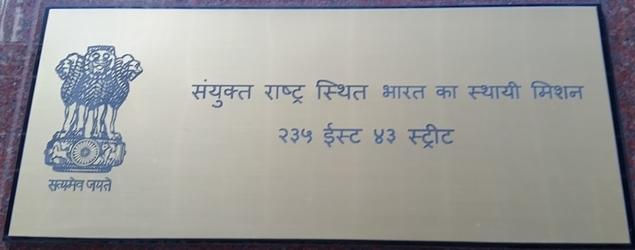 संयुक्त राष्ट्र स्थित भारत का स्थायी मिशन
२३५ ईस्ट ४३ स्ट्रीट
सत्यमेव जयते